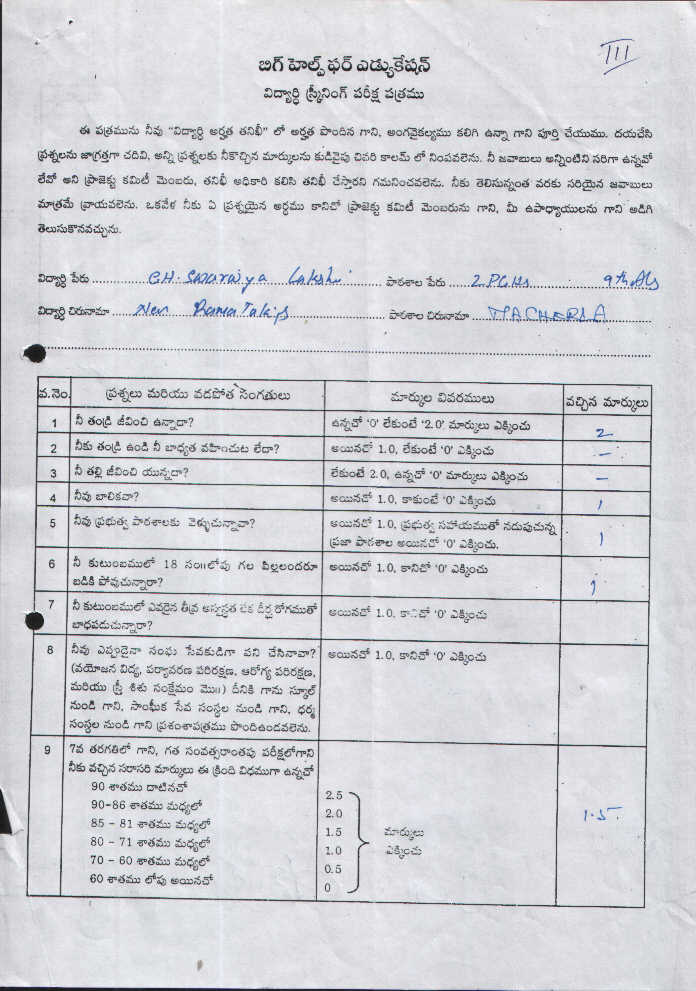 III
బిగ్ హెల్ప్ ఫర్ ఎడ్యుకేషన్
విద్యార్ధి స్క్రీనింగ్ పరీక్ష పత్రము
ఈ పత్రమును నీవు "విద్యార్ధి అర్హత తనిఖీ" లో అర్హత పొందిన గాని, అంగవైకల్యము కలిగి ఉన్నా గాని పూర్తి చేయుము. దయచేసి
ప్రశ్నలను జాగ్రత్తగా చదివి, అన్ని ప్రశ్నలకు నీకొచ్చిన మార్కులను కుడివైపు చివరి కాలమ్ లో నింపవలెను. నీ జవాబులు అన్నింటిని సరిగా ఉన్నవో
లేవో అని ప్రాజెక్టు కమిటీ మెంబరు, తనిఖీ అధికారి కలిసి తనిఖీ చేస్తారని గమనించవలెను. నీకు తెలిసున్నంత వరకు సరియైన జవాబులు
మాత్రమే వ్రాయవలెను. ఒకవేళ నీకు ఏ ప్రశ్నయైన అర్ధము కానిచో ప్రాజెక్టు కమిటీ మెంబరును గాని, మీ ఉపాధ్యాయులను గాని అడిగి
తెలుసుకొనవచ్చును.
విద్యార్ధి పేరు CH. Swarajya Lakshmi పాఠశాల పేరు 2.PGHs 9th
విద్యార్ధి చిరునామా New Rama Talkis పాఠశాల చిరునామా MACHERLA
వ.నెం. ప్రశ్నలు మరియు వడపోత సంగతులు మార్కుల వివరములు వచ్చిన మార్కులు
1 నీ తండ్రి జీవించి ఉన్నాడా? ఉన్నచో '0' లేకుంటే '2.0' మార్కులు ఎక్కించు 2
2 నీకు తండ్రి ఉండి నీ బాధ్యత వహించుట లేదా? అయినచో 1.0, లేకుంటే '0' ఎక్కించు –
3 నీ తల్లి జీవించి యున్నదా? లేకుంటే 2.0, ఉన్నచో '0' మార్కులు ఎక్కించు –
4 నీవు బాలికవా? అయినచో 1.0, కాకుంటే '0' ఎక్కించు 1
5 నీవు ప్రభుత్వ పాఠశాలకు వెళ్ళుచున్నావా? అయినచో 1.0, ప్రభుత్వ సహాయముతో నడుపుచున్న 1
ప్రజా పాఠశాల అయినచో '0' ఎక్కించు.
6 నీ కుటుంబములో 18 సం॥లోపు గల పిల్లలందరూ అయినచో 1.0, కానిచో '0' ఎక్కించు 1
బడికి పోవుచున్నారా?
7 నీ కుటుంబములో ఎవరైన తీవ్ర అస్వస్థత లేక దీర్ఘ రోగముతో అయినచో 1.0, కానిచో '0' ఎక్కించు
బాధపడుచున్నారా?
8 నీవు ఎప్పుడైనా సంఘ సేవకుడిగా పని చేసినావా? అయినచో 1.0, కానిచో '0' ఎక్కించు
(వయోజన విద్య, పర్యావరణ పరిరక్షణ, ఆరోగ్య పరిరక్షణ,
మరియు స్త్రీ శిశు సంక్షేమం మొ॥) దీనికి గాను స్కూల్
నుండి గాని, సాంఘిక సేవ సంస్థల నుండి గాని, ధర్మ
సంస్థల నుండి గాని ప్రశంశాపత్రము పొందిఉండవలెను.
9 7వ తరగతిలో గాని, గత సంవత్సరాంతపు పరీక్షలోగాని
నీకు వచ్చిన సరాసరి మార్కులు ఈ క్రింది విధముగా ఉన్నచో
90 శాతము దాటినచో 2.5
90-86 శాతము మధ్యలో 2.0
85 - 81 శాతము మధ్యలో 1.5 మార్కులు 1.5
80 - 71 శాతము మధ్యలో 1.0 ఎక్కించు
70 - 60 శాతము మధ్యలో 0.5
60 శాతము లోపు అయినచో 0